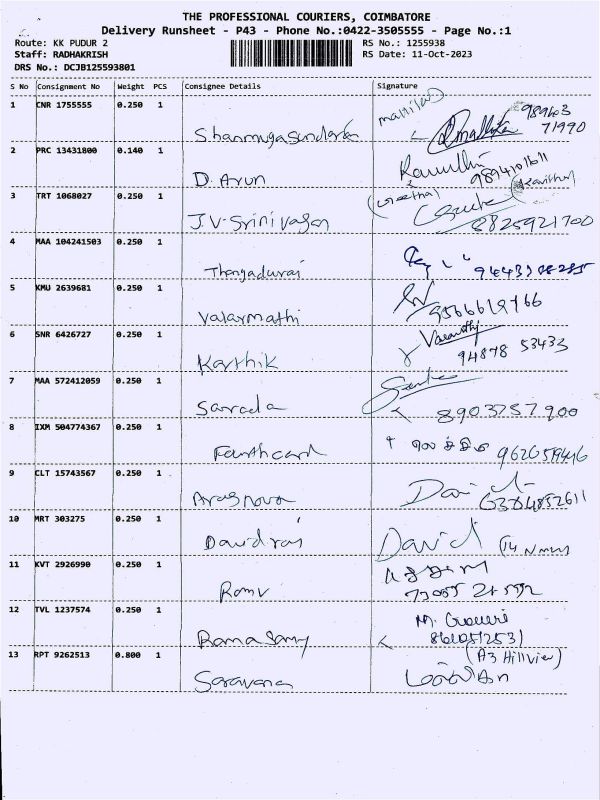 THE PROFESSIONAL COURIERS, COIMBATORE
Delivery Runsheet - P43 - Phone No.:0422-3505555 - Page No.:1
Route: KK PUDUR 2 RS No.: 1255938
Staff: RADHAKRISH RS Date: 11-Oct-2023
DRS No.: DCJB125593801
S No Consignment No Weight PCS Consignee Details Signature
1 CNR 1755555 0.250 1 Shanmugasundaram 989403
71990
2 PRC 13431800 0.140 1 D. Arun 9894101611
3 TRT 1068027 0.250 1 J.V. Srinivasan 8825921700
4 MAA 104241503 0.250 1 Thangadurai
5 KMU 2639681 0.250 1 Valarmathi 9566619766
6 SNR 6426727 0.250 1 Karthik 94878 53433
7 MAA 572412059 0.250 1 Sarada 8903757900
8 IXM 504774367 0.250 1
9 CLT 15743567 0.250 1 David 6384852611
10 MRT 303275 0.250 1 Davidraj David
11 KVT 2926990 0.250 1 Ramu
12 TVL 1237574 0.250 1 Ramasamy M. Gowri
(A3 Hillview)
13 RPT 9262513 0.800 1 Saravana